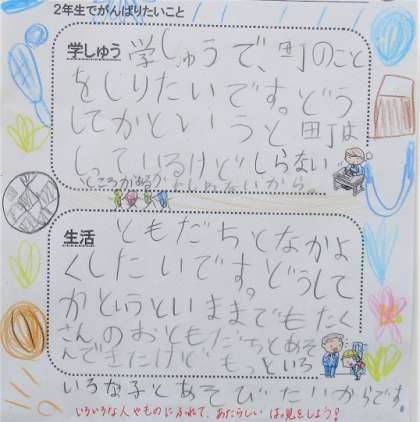 2年生でがんばりたいこと
学しゅう
学しゅうで、町のこと
をしりたいです。どう
してかというと町は
しっているけどしらない
ところがあるかもしれないから。
生活
ともだちとなかよ
くしたいです。どうして
かというといままでもたく
さんのおともだちとあそ
んできたけどもっといろ
いろな子とあそびたいからです。
いろいろな人やものにふれて、あたらしいはっ見をしよう!